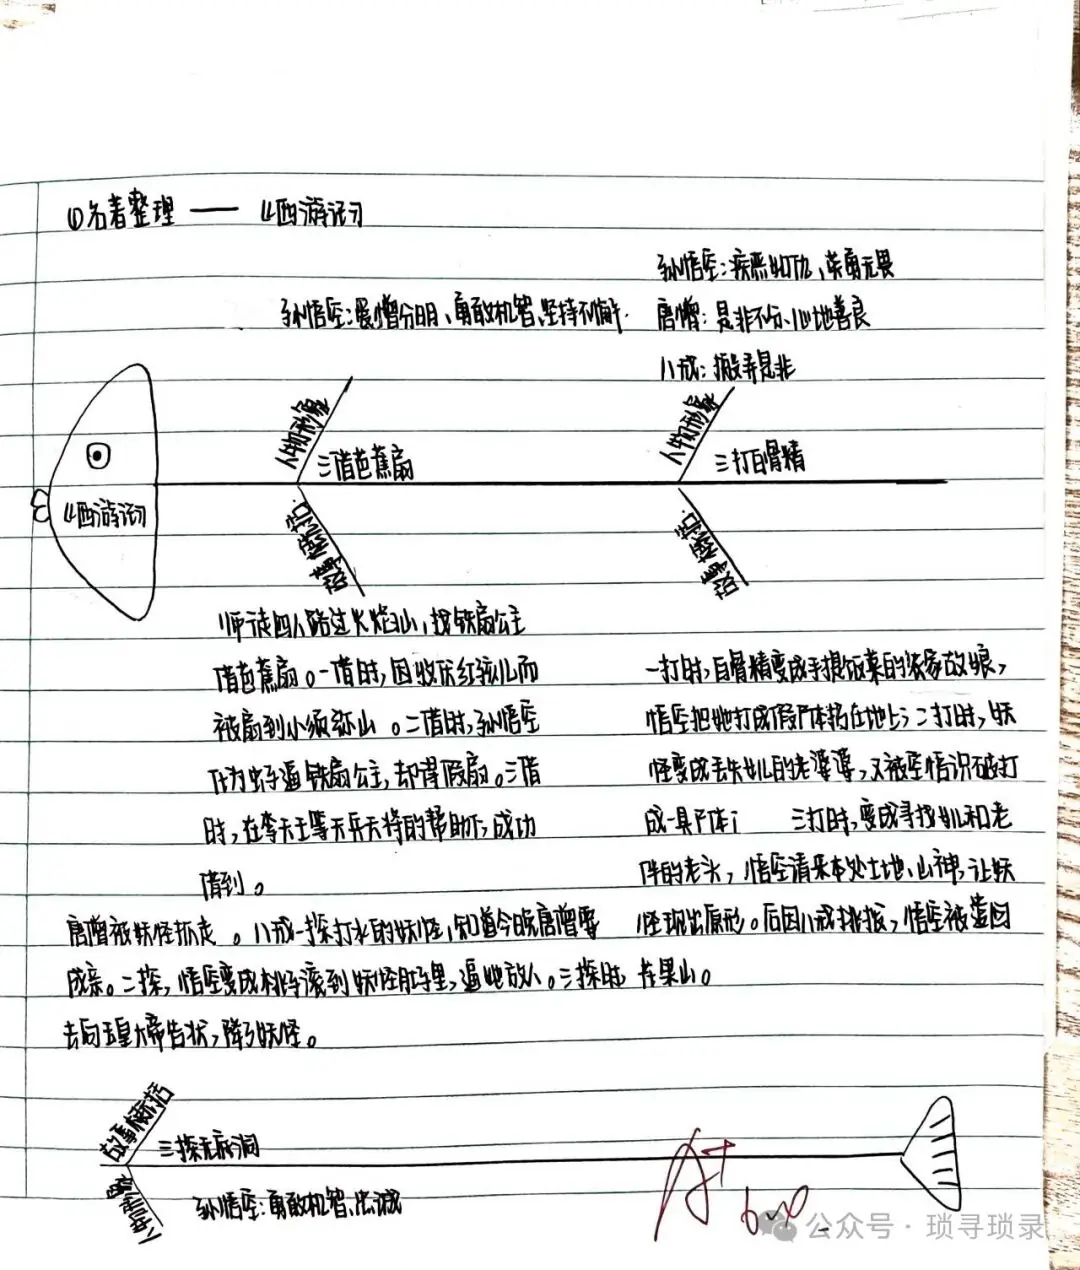 ①名著整理 —— 《西游记》
孙悟空:疾恶如仇、英勇无畏
孙悟空:爱憎分明、勇敢机智、坚持不懈.
唐僧:是非不分、心地善良
八戒:搬弄是非
人物形象
三借芭蕉扇
人物形象
三打白骨精
《西游记》
故事概括.
故事概括.
师徒四人路过火焰山,找铁扇公主
借芭蕉扇。一借时,因收厌红孩儿而
被扇到小须弥山。二借时,孙悟空
铁扇公主,却得假扇。三借
时,在李天王等天兵天将的帮助下,成功
借到。
一打时,白骨精变成手提饭菜的农家姑娘,
悟空把她打成假尸体扔在地上;二打时,妖
怪变成丢失女儿的老婆婆,又被空悟识破打
成一具尸体; 三打时,变成寻找女儿和老
伴的老头,悟空请来本处土地、山神,让妖
怪现出原形。后因八戒挑拨,悟空被遣回
花果山。
唐僧被妖怪抓走。八戒一探打水的妖怪,知道今晚唐僧要
成亲。二探,悟空变成桃子滚到妖怪肚子里,逼她放人。三探时
去向玉皇大帝告状,降了妖怪。
故事概括
三探无底洞
人物形象
孙悟空:勇敢机智、忠诚
A+
公众号·琐寻琐录